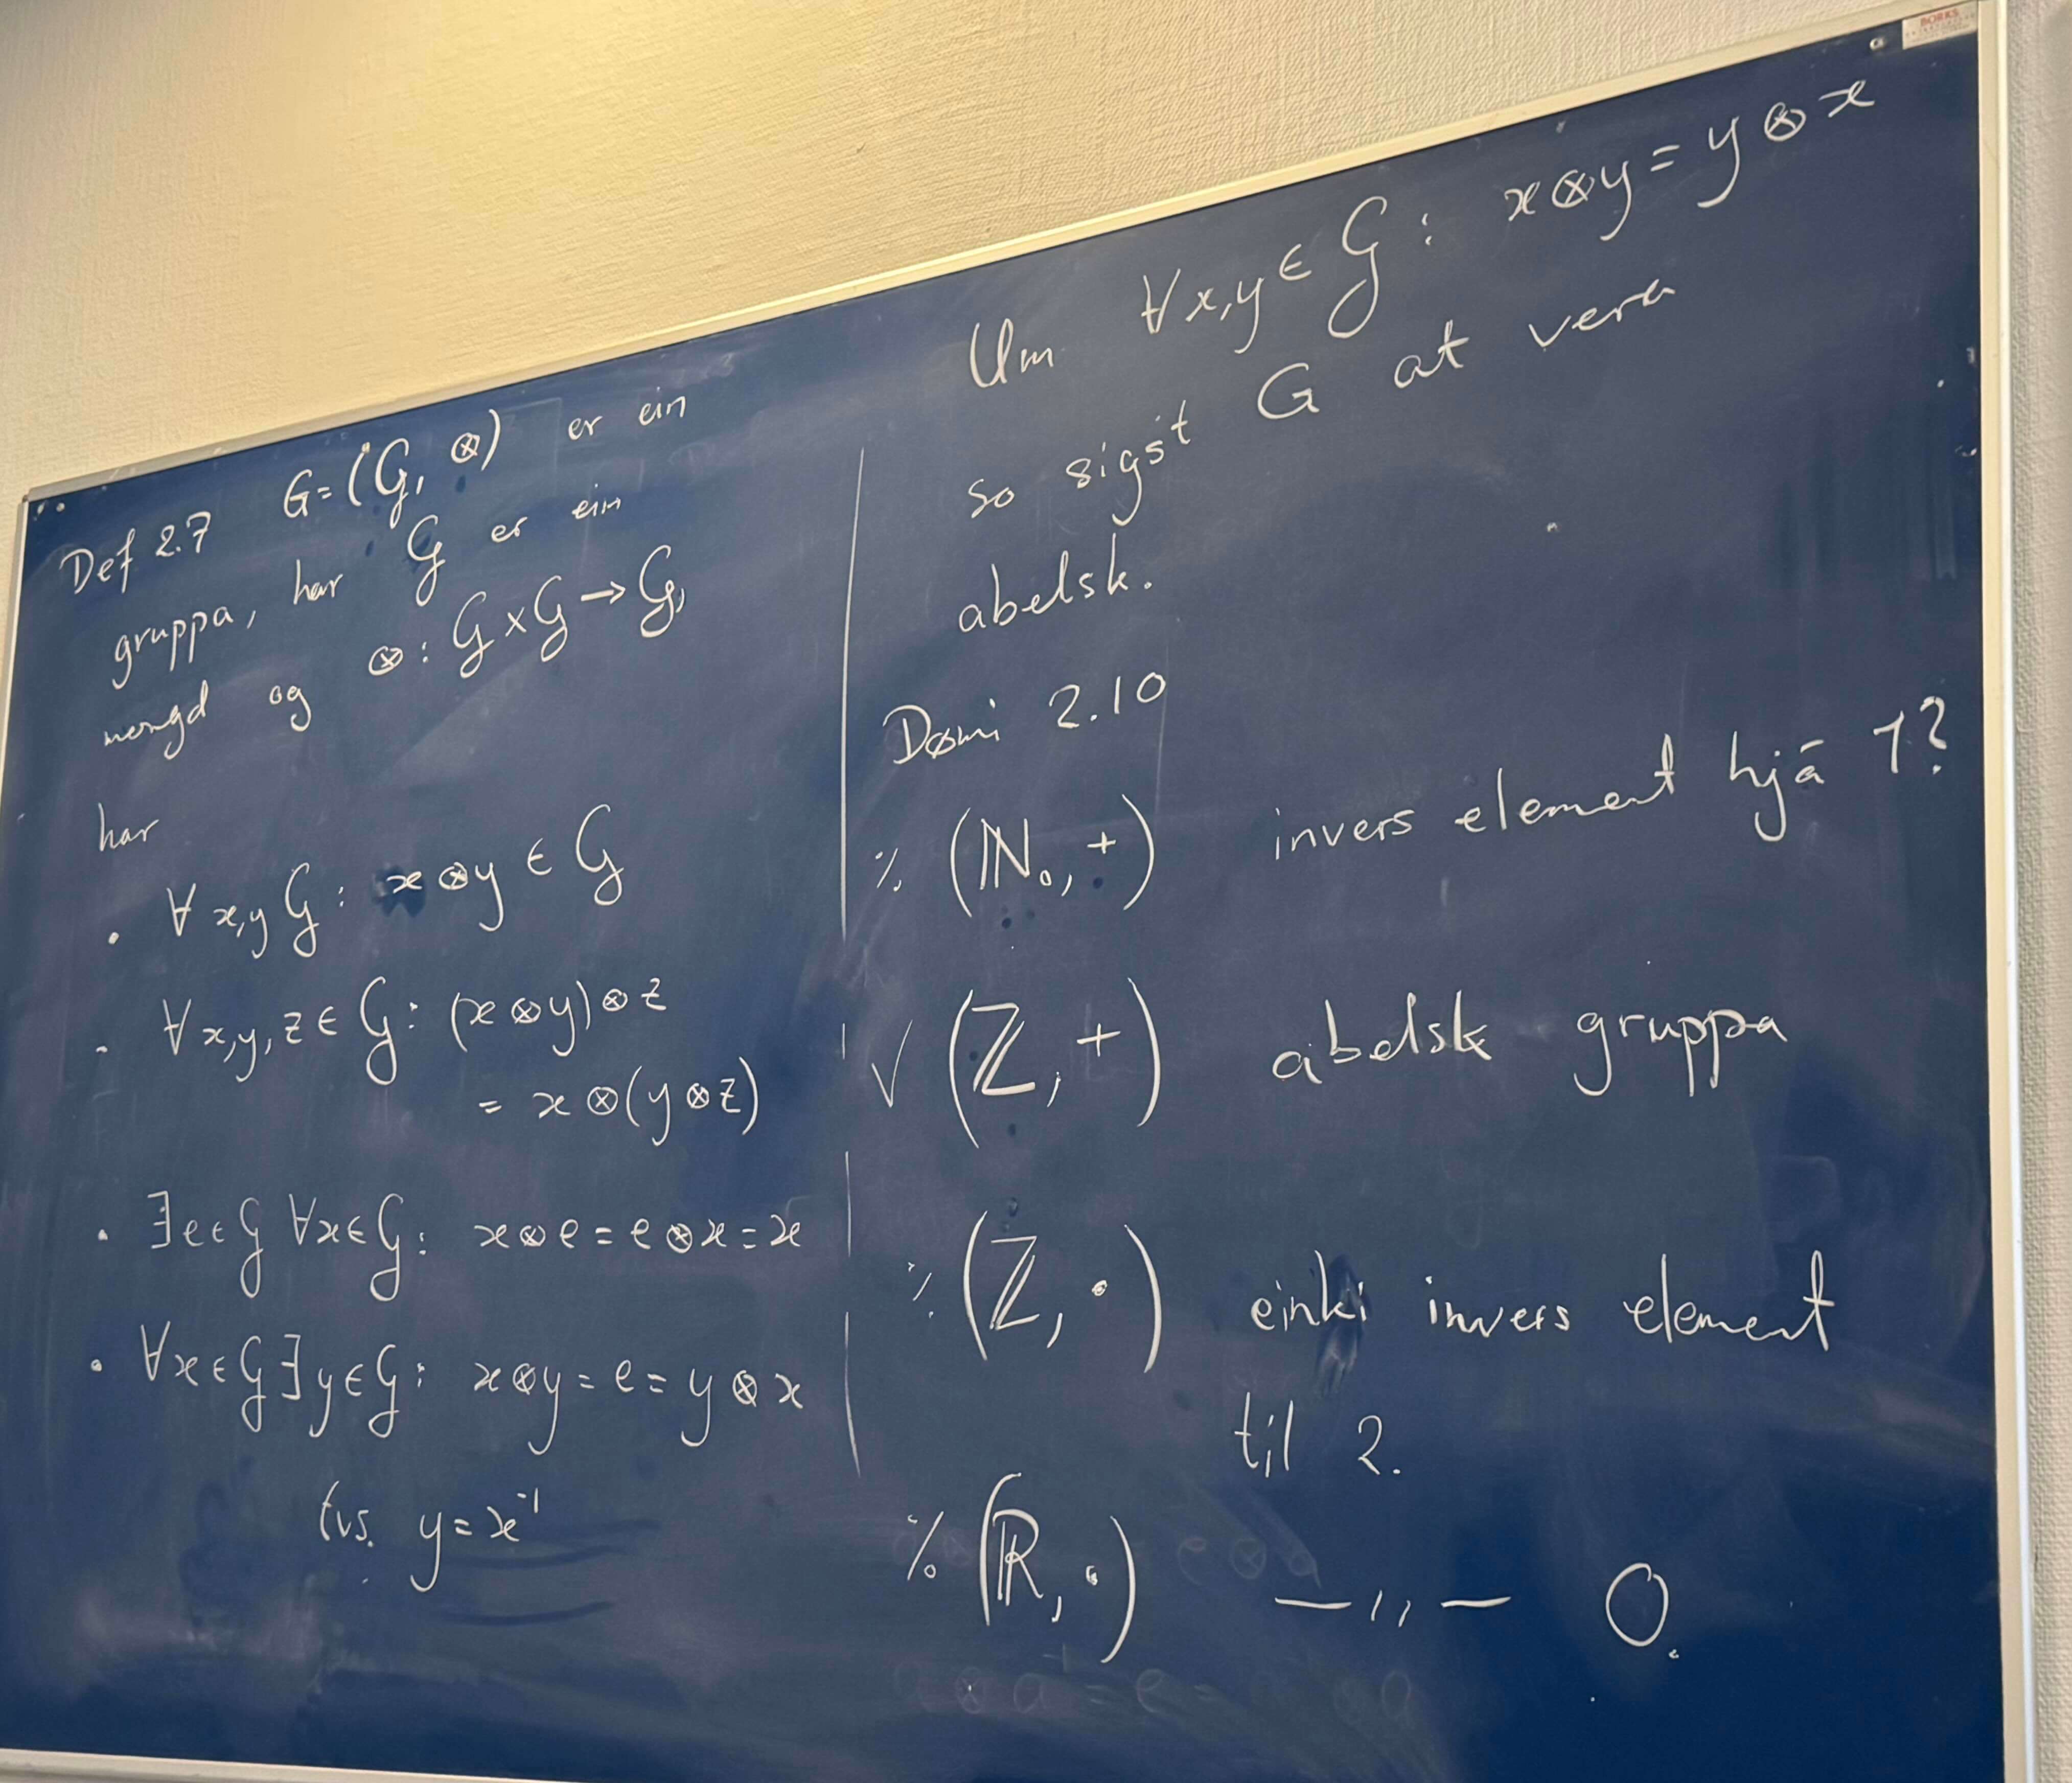 Def 2.7 G=(𝒢, ⊗) er ein
gruppa, har 𝒢 er ein
mongd og ⊗: 𝒢×𝒢→𝒢,
har
• ∀ x,y 𝒢: x⊗y ∈ 𝒢
- ∀ x,y,z ∈ 𝒢: (x⊗y)⊗z
= x⊗(y⊗z)
• ∃e∈𝒢 ∀x∈𝒢: x⊗e=e⊗x=x
• ∀x∈𝒢 ∃y∈𝒢: x⊗y=e=y⊗x
tvs. y=x⁻¹
Um ∀x,y∈𝒢: x⊗y=y⊗x
so sigst G at vera
abelsk.
Dømi 2.10
% (ℕ₀, +) invers element hjá 1?
√ (ℤ, +) abelsk gruppa
% (ℤ, •) einki invers element
til 2.
% (ℝ, •) —,,— 0.
BORKS